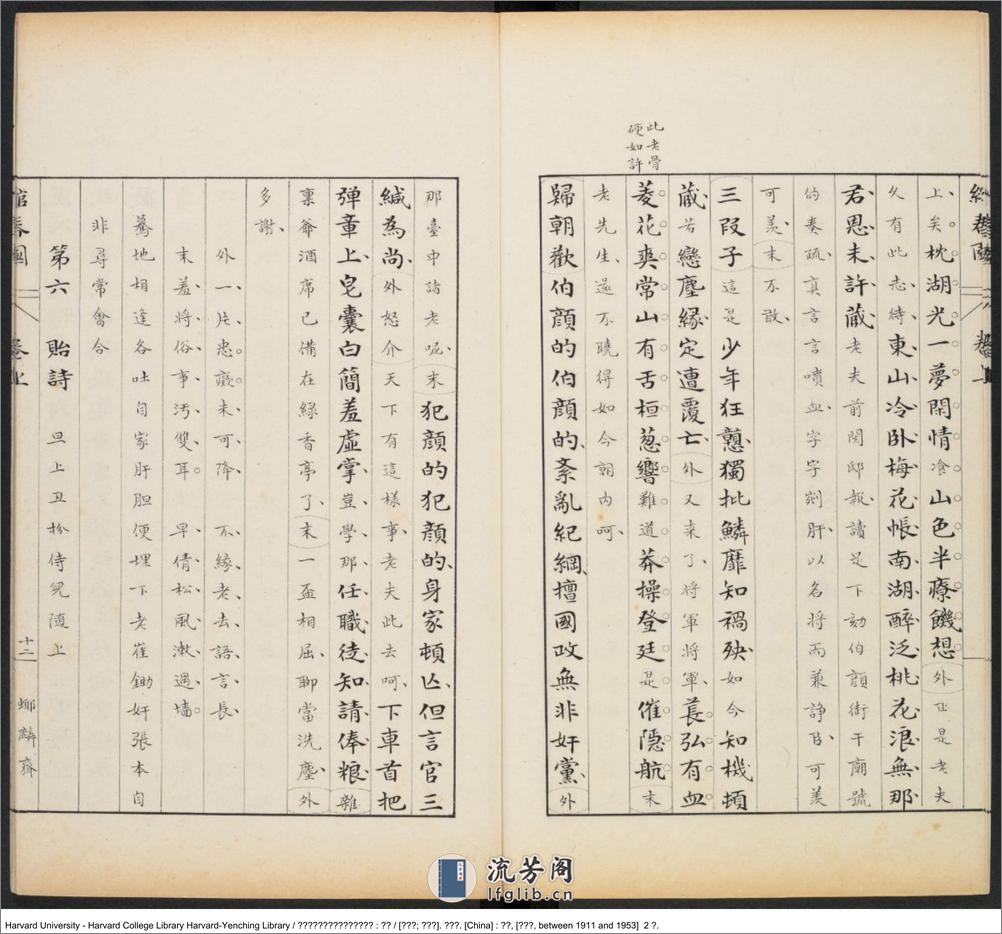 此老骨
硬如許
上矣枕湖光一夢閑情飡山色半療饑想外正是老夫
久有此志待東山冷臥梅花帳南湖醉泛桃花浪無那
君恩未許藏老夫前閱邸報讀足下劾伯顏銜干廟號
的奏疏真言言噴血字字剜肝以名將而兼諍臣可羨
可羨末不敢
三段子這是少年狂戇獨批鱗靡知禍殃如今知機頓
藏若戀塵緣定遭覆亡外又来了將軍將軍萇弘有血
菱花爽常山有舌桓葱響難道莽操登廷是催隱航末
老先生還不曉得如今朝内呵
歸朝歡伯顏的伯顏的紊亂紀綱擅國政無非奸黨外
那臺中諸老呢末犯顏的犯顏的身家頓亾但言官三
緘為尚外怒介天下有這樣事老夫此去呵下車首把
弹章上皂囊白簡羞虛掌豈學那任職徒知請俸粮雜
稟爺酒席已備在綠香亭了末一盃相屈聊當洗塵外
多謝
外一片忠癡未可降　不緣老去語言長
末羞將俗事汚雙耳　早倩松風漱過墻
驀地相逢各吐自家肝胆便埋下老崔鋤奸張本自
非尋常會合
第六　貽詩　旦上丑扮侍兒隨上
卷上
十二
卷上
流芳阁
lfglib.cn
Harvard University - Harvard College Library Harvard-Yenching Library / ??????????????? : ?? / [???; ???]. ???. [China] : ??, [???, between 1911 and 1953]  2 ?.